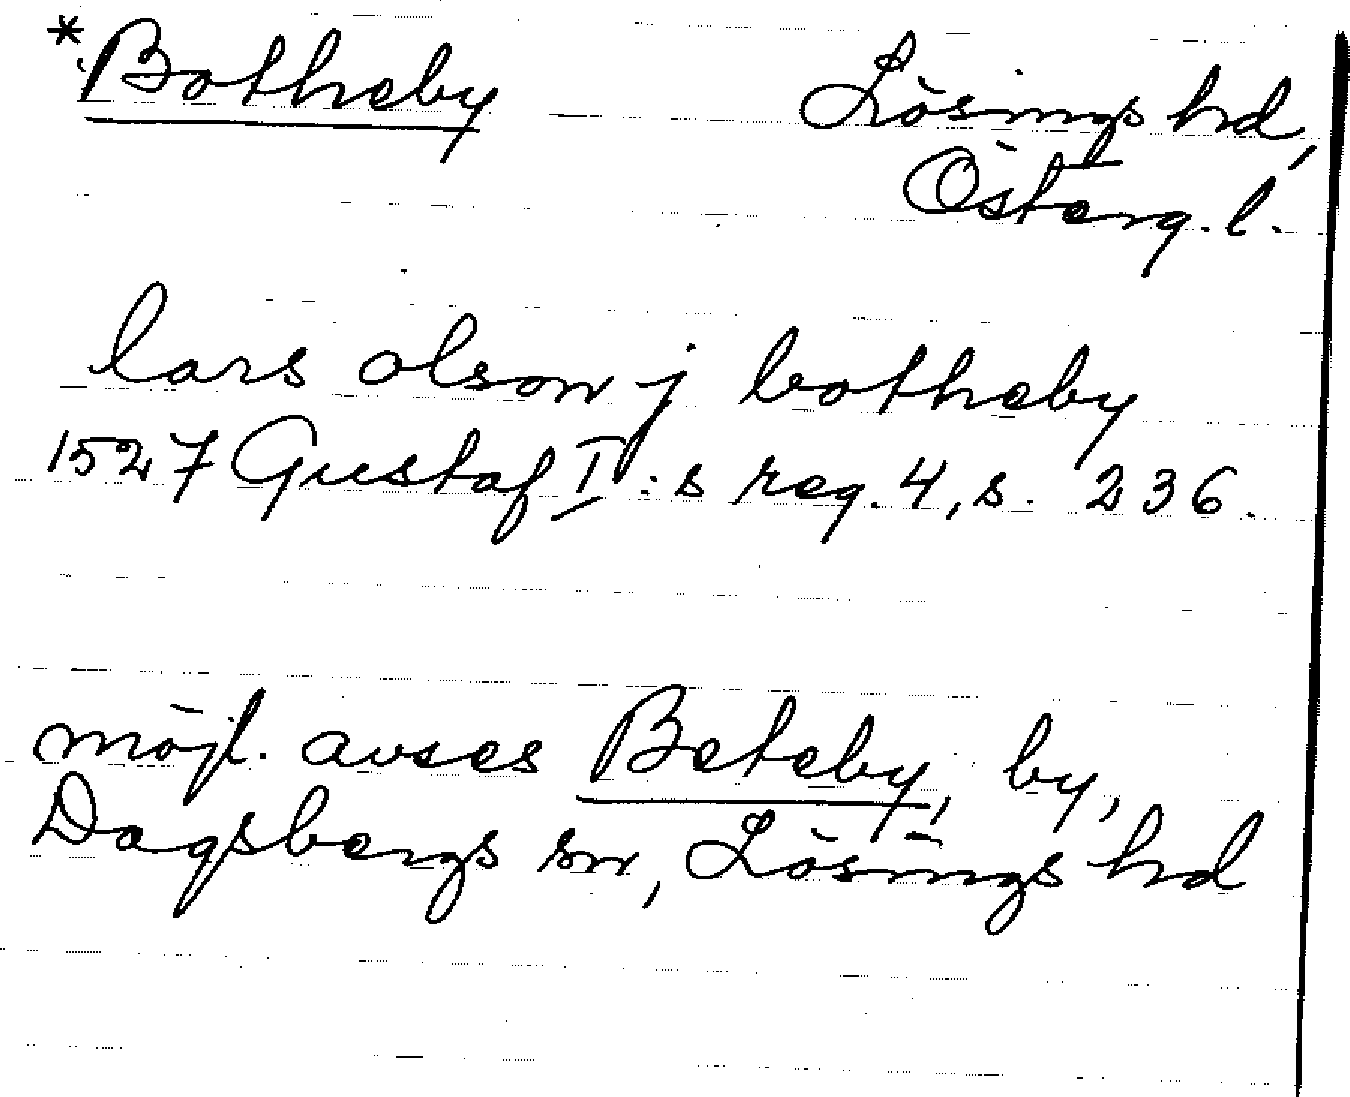 *Botheby Lösings hd,
Österg. l.
lars olson j botheby
1527 Gustaf I:s reg. 4, s. 236.
möjl. avses Beteby, by,
Dagsbergs sn, Lösings hd